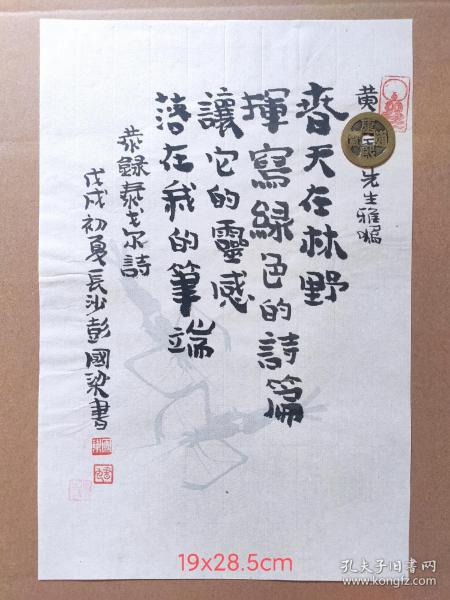 黄
先生雅嘱
春天在林野
揮寫綠色的詩篇
讓它的靈感
落在我的筆端
恭錄泰戈尔詩
戊戌初夏長沙彭國梁書
19x28.5cm
孔夫子旧书网
www.kongfz.com